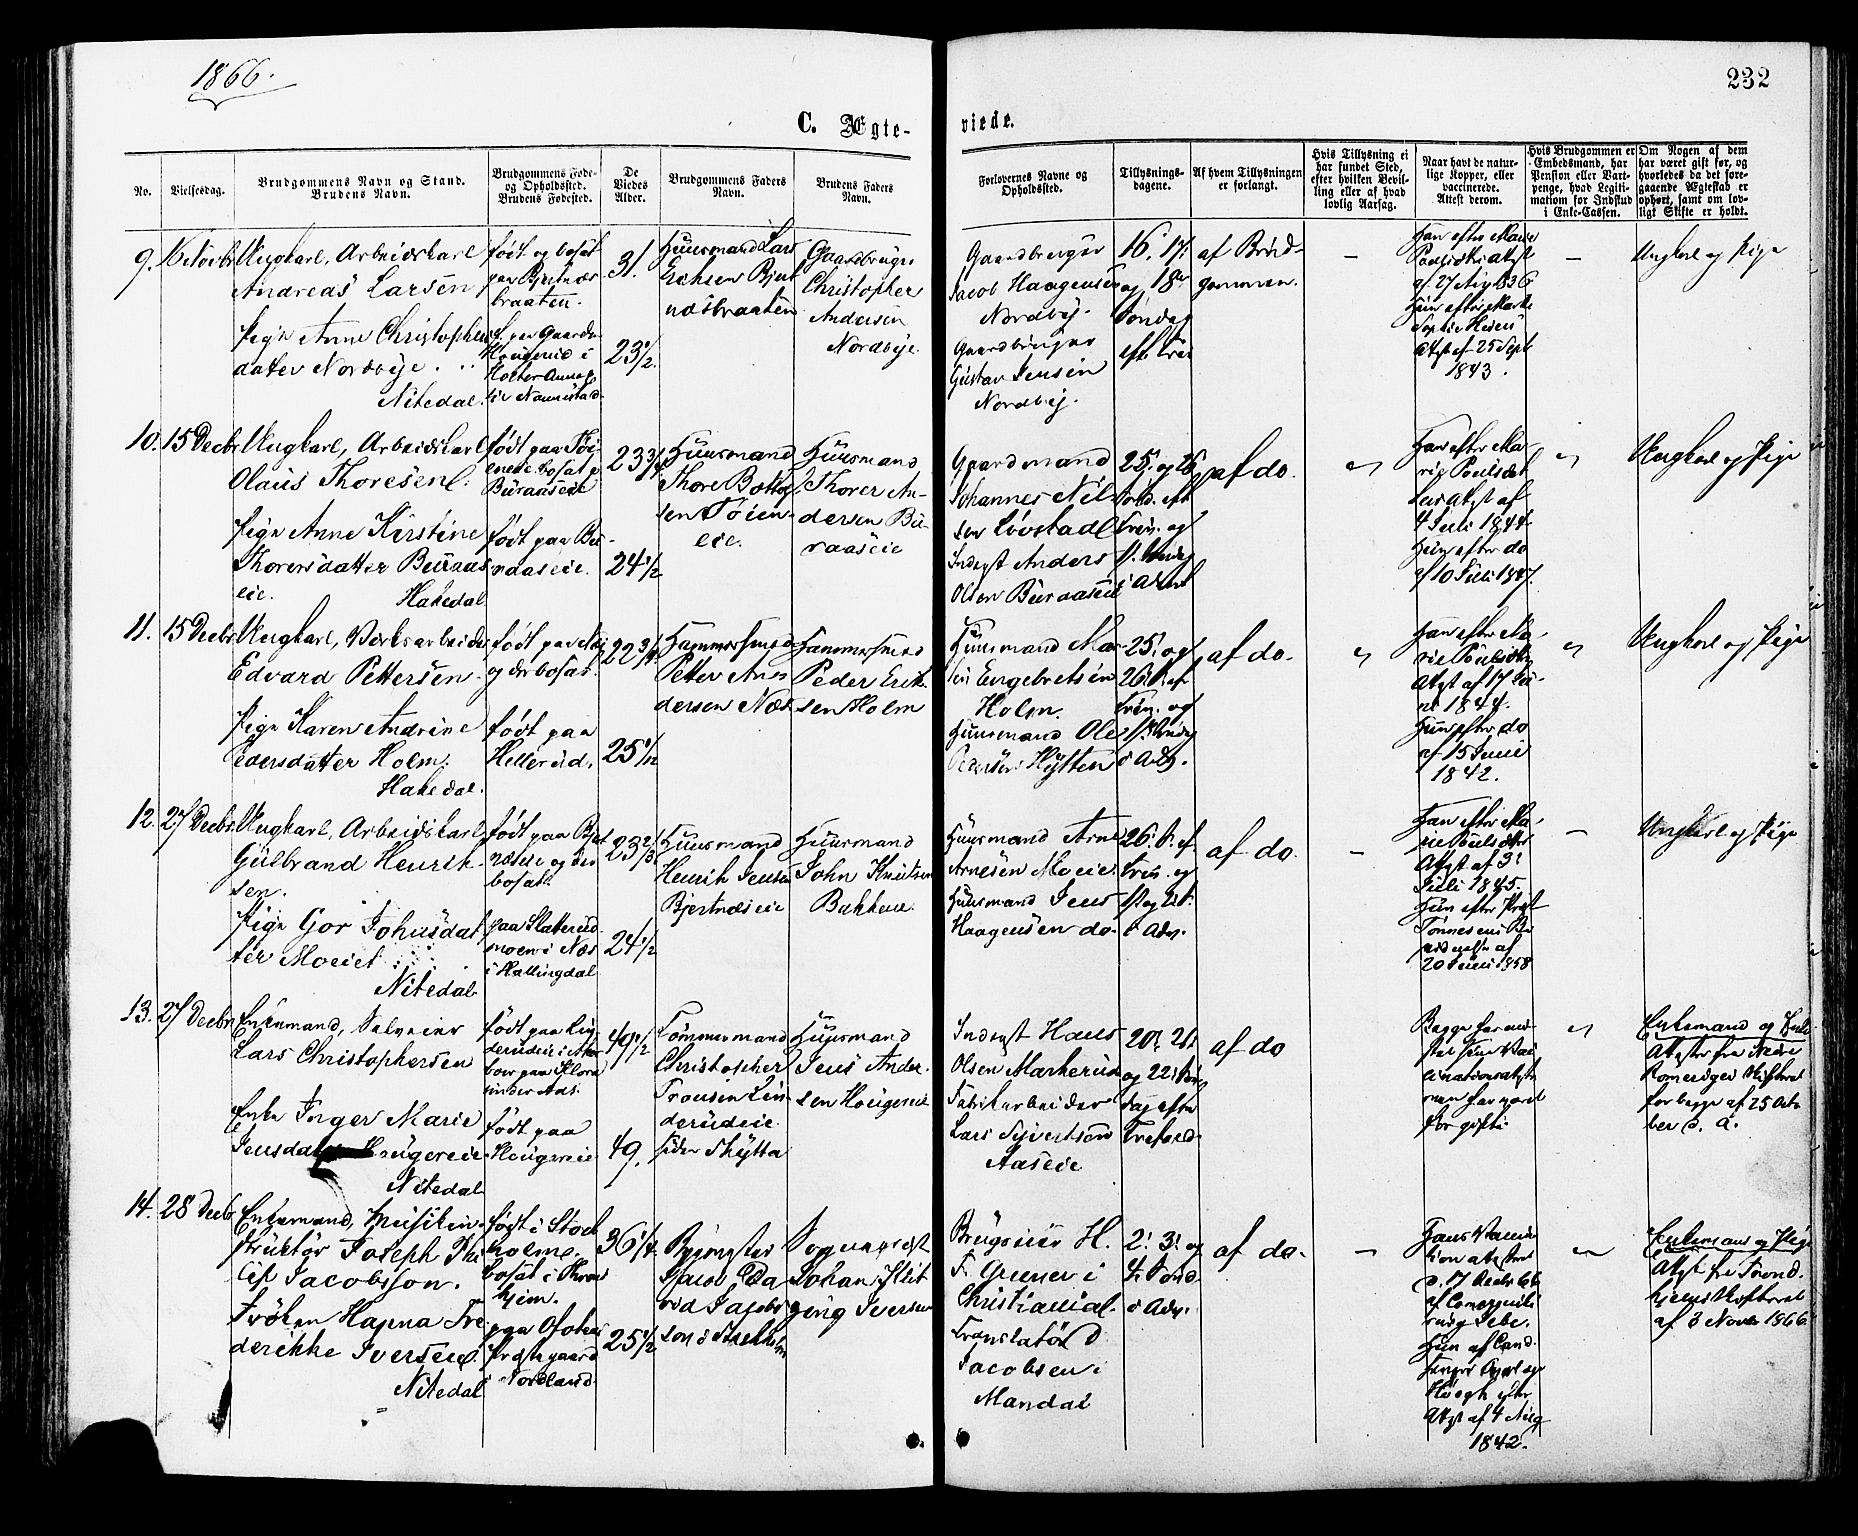 1866.
232
C. Ægte-
viede.
No.
Vielsesdag.
Brudgommens Navn og Stand.
Brudens Navn.
Brudgommens Føde-
og Opholdssted.
Brudens Fødested.
De
Viedes
Alder.
Brudgommens Faders
Navn.
Brudens Faders
Navn.
Forlovernes Navne og
Opholdssted.
Tillysnings-
dagene.
Af hvem Tillysningen
er forlangt.
Hvis Tillysning ei
har fundet Sted,
efter hvilken Bevil-
ling eller af hvad
lovlig Aarsag.
Naar havt de natur-
lige Kopper, eller
vaccinerede.
Attest derom.
Hvis Brudgommen er
Embedsmand, har
Pension eller Vart-
penge, hvad Legiti-
mation for Indskud
i Enke-Cassen.
Om Nogen af dem
har været gift før, og
hvorledes da det fore-
gaaende Ægteskab er
ophørt, samt om lov-
ligt Skifte er holdt.
9.
Ungkarl, Arbeidskarl
Andreas Larsen
Pige Anne Christophers
datter Nordbye
Nitedal.
født og bosat
paa Bjertnæs
braaten.
f. paa Gaarden
Hougerud i
31.
23 1/2.
Huusmand Lars
Erichsen Bjert
næsbraaten
Gaardbruger
Christopher
Andersen
Nordbye.
Gaardbruger
Jacob Haagensen
Nordbye.
Gaardbruger
Gustav Jensen
Nordbye.
16. 17.
og 18de
Søndag
eft. Trin
af Brud-
gommen.
Han efter Marie
Poulsdtrs Attest
af 27 Aug 1836
Hun efter Marthe
Sophie
Attest af 25 Sept
1843.
Ungkarl og Pige
10.
15 Decbr
Ungkarl, Arbeidskarl
Olaus Thoresen.
Pige Anne Kirstine
Thorersdatter Buraas
eie.
Hakedal
født paa Tøi-
eneie bosat p
Buraaseie
født paa Bu-
raaseie.
23 3/4
24 1/2
Huusmand
Thore
sen Tøien-
eie.
Huusmand
Thorer An-
dersen Bu-
raaseie
Gaardmand
Johannes Nil-
sen Løvstad
Inderst Anders
Olsen Buraaseie
25. og 26.
Sønd. eft
Trin. og
1. Søndag
i Advent
af do.
Han efter Ma-
rie Poulsdat
ters Attest af
4 Juli 1844
Hun efter do
af 10 Juli 1847.
Ungkarl og Pige
11.
15 Decbr
Ungkarl, Værksarbeider
Edvard Pettersen.
Pige Karen Andrine
Pedersdatter Holm.
Hakedal.
født paa
og der bosat.
født paa
Hellerud.
22 3/4
25 1/12
Hammersmed
Petter An-
dersen Næs
Hammersmed
Peder Erik-
sen Holm
Huusmand Mar-
Engebretsen
Holm.
Huusmand Ole
Pedersen Hytten
25. og
26. S. af
Trin. og
1. Søndag
i Adv.
af do.
Han efter Ma-
rie Poulsdtrs
Attest af 17 Ju-
ni 1844.
Hun efter do
af 15 Juni
1842.
Ungkarl og Pige
12.
27 Decbr.
Ungkarl, Arbeidskarl
Gulbrand Henrik-
sen.
Pige Gor Johnsdat
ter Moeiet
Nitedal
født paa Bjert
næseie og der
bosat.
paa Slatterud
moen i Næs
i Hallingdal
23 2/3
24 1/2
Huusmand
Henrik Jensen
Bjertnæseie
Huusmand
John Knutsen
Bakkene.
Huusmand Arne
Arnesen Moeie.
Huusmand Jens
Haagensen do.
26. S. ef.
Trin. og
1. og 2.
i Adv.
af do.
Han efter Ma-
rie Poulsdtrs
Attest af 3.
Juli 1845.
Hun efter Præst
Tønnesens Be
vidnelse af
20 Juni 1858
Ungkarl og Pige
13.
27 Decbr
Enkemand, Selveier
Lars Christophersen
Enke Inger Marie
Jensdatter Hougereie
Nitedal
født paa Lin-
derudeie i Aker
under Aas.
født paa
Hougereie
49 1/2
49.
Tømmermand
Christopher
Tronsen Lin-
derudeie
siden Skytta
Huusmand
Jens Ander-
sen Hougereie
Inderst Hans
Olsen Markerud
Fabrikarbeider
Lars Syvertsen
Aaseie
20. 21.
og 22. Søn
dag efter
Trefold.
af do
Begge have
Vac
cinationsattest
før giftet.
Enkemand og Enke
Attester fra Nedre
Romeriges Skifteret
for begge af 25 Octo
ber d. A.
14.
28 Decbr
Enkemand, Musikin-
struktør Joseph Phi
lip Jacobsson.
Frøken Hanna Fre
derikke Iversen.
Nitedal
født i Stock
holm.
bosat i Thron
hjem.
paa Ofoten
Præstegaard
i Nordland.
36 1/4.
25 1/2
Bygmester
Jacob Da
vid Jacobs
son i Stockholm
Sogneprest
Johan
Iversen
Brugseier H.
F. Gruner i
Christiania.
Translatør D
Jacobsen i
Mandal
2. 3. og
4. Sønd.
i Adv.
af do.
Hans Vacci-
tion attesteret
d. 17 Decbr 66
Hun af Cand.
Høegh efter
Attest af 4 Aug
1842.
Enkemand og Pige
Attest fra Trond-
hjems Skifteret
af 3 Novbr 1866